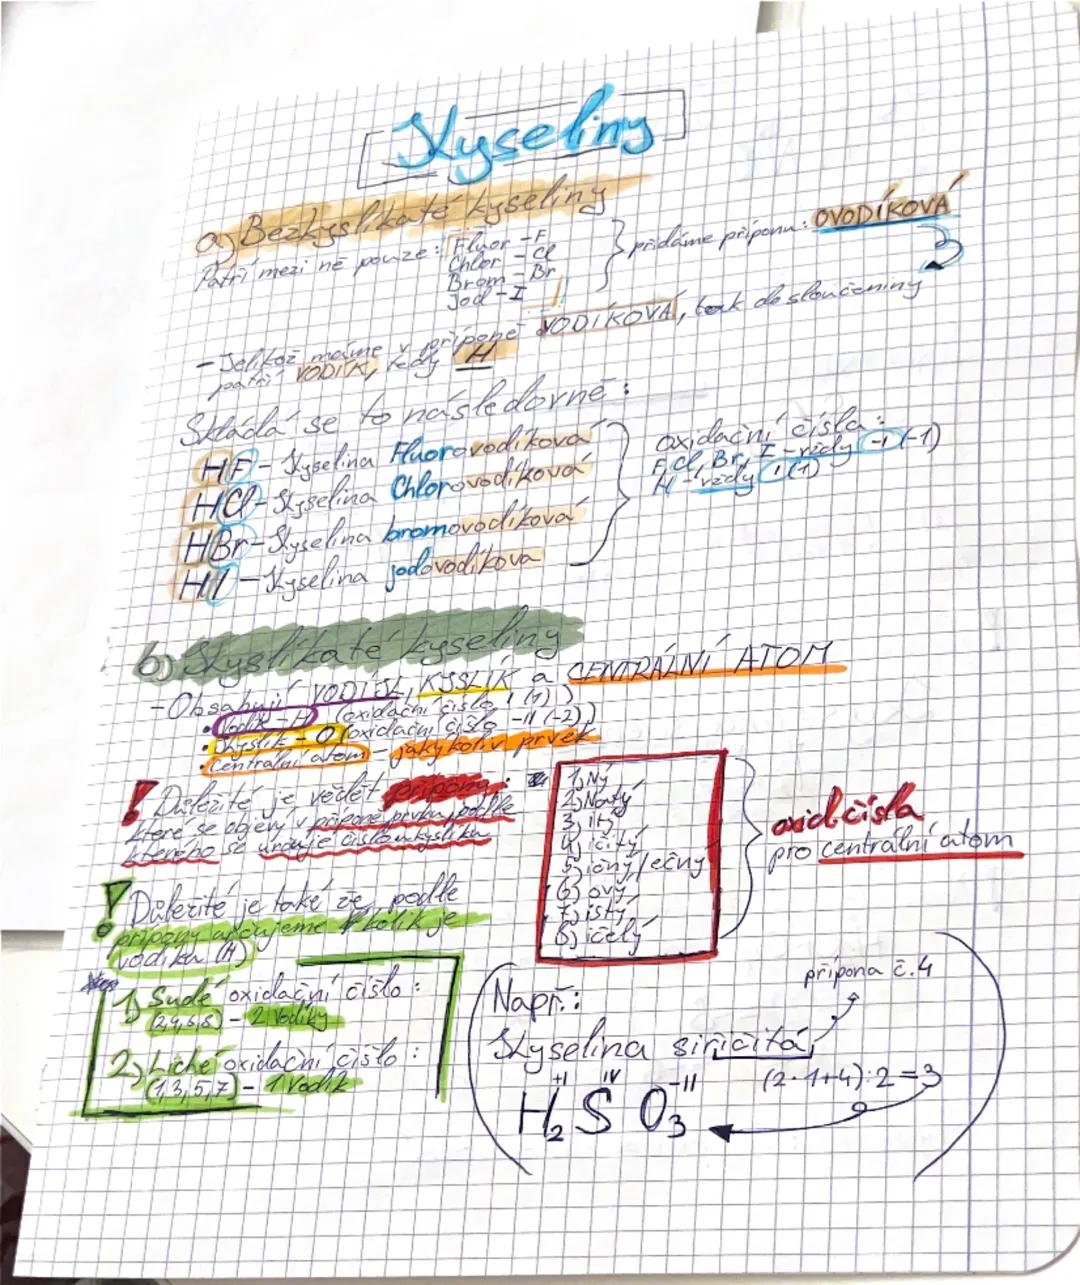 Kyseliny
a) Bezkyslíkaté kyseliny
Patří mezi ně pouze: Fluor - F
Chlor - Cl
Brom - Br
Jod - I
přidáme příponu: OVODÍKOVÁ
- Jelikož máme v příponě VODÍKOVÁ, tak do sloučeniny
patří VODÍK, tedy H
Skládá se to následovně:
HF - Kyselina Fluorovodíková
HCl - Kyselina Chlorovodíková
HBr - Kyselina bromovodíková
HI - Kyselina jodovodíkova
oxidační čísla:
F, Cl, Br, I - vždy -I (-1)
H - vždy I (1)
b) Kyslíkaté kyseliny
- Obsahují VODÍK, KYSLÍK a CENTRÁLNÍ ATOM
• Vodík - H (oxidační číslo I (1))
• Kyslík - O (oxidační číslo -II (-2))
• Centrální atom - jakýkoliv prvek
! Důležité je vědět přípona:
které se objeví v příponě prvku, podle
kterého se určuje číslo u kyslíku
1) Ný
2) Natý
3) itý
4) ičitý
5) ičný/ečný
6) ový
7) istý
8) ičelý
oxid. čísla
pro centrální atom
! Důležité je také že, podle
přípony určujeme kolik je
vodíku (H)
1) Sudé oxidační číslo:
(2,4,6,8) - 2 vodíky
2) Liché oxidační číslo:
(1,3,5,7) - 1 vodík
Např.:
přípona č.4
Kyselina siřičitá
+I IV -II
H2 S O3
(2·1+4):2=3